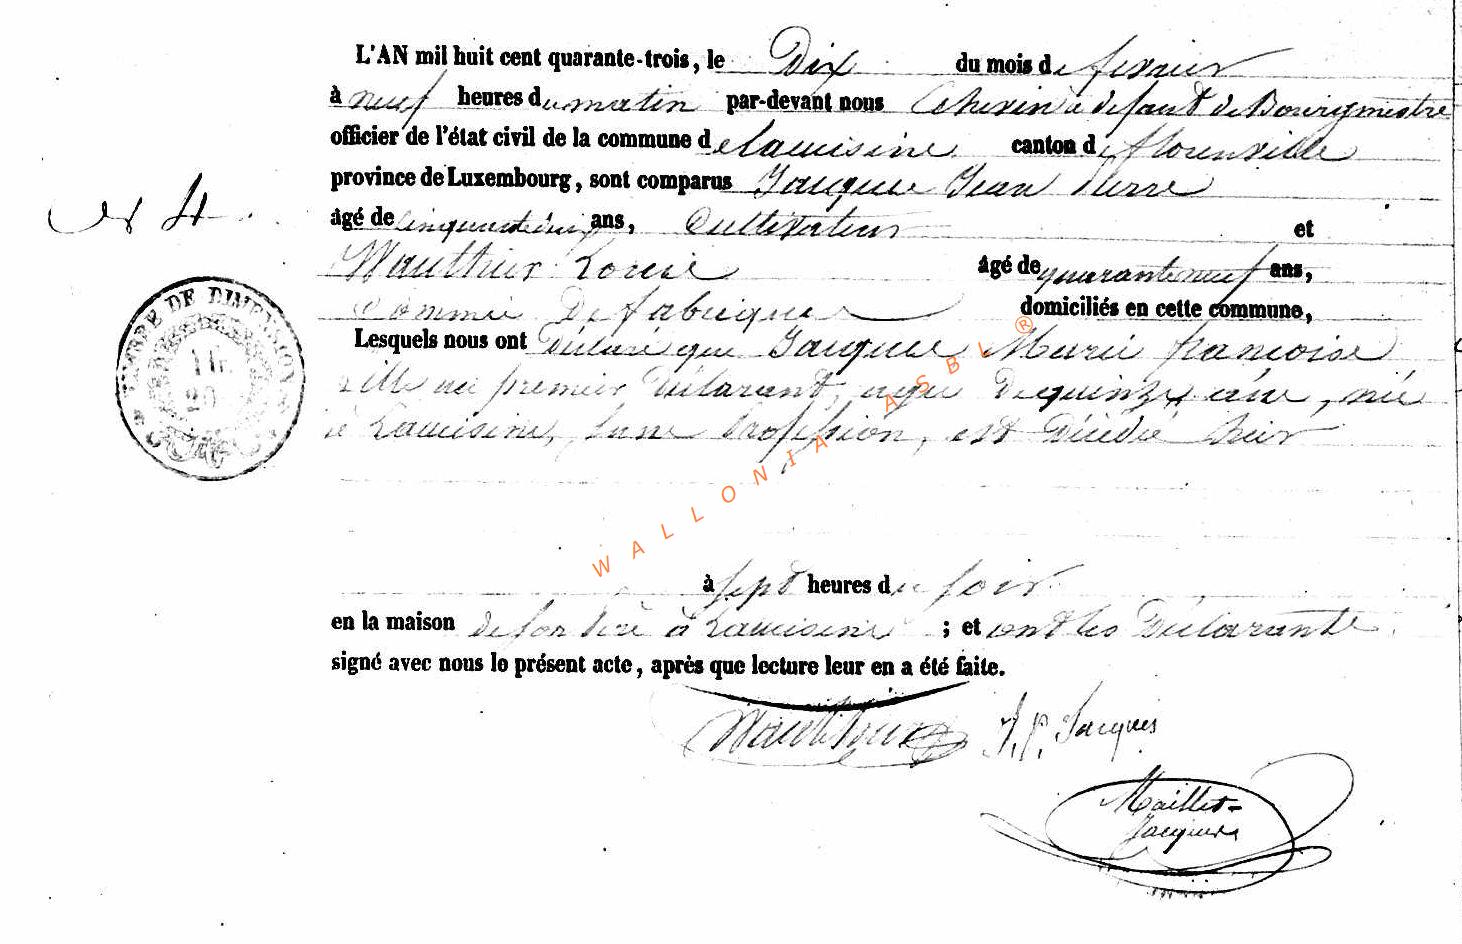 L'AN mil huit cent quarante-trois, le Dix du mois de fevrier
à neuf heures du matin par-devant nous Echevin à defaut de Bourgmestre
officier de l'état civil de la commune de Lacuisine canton de florenville
province de Luxembourg, sont comparus Jacques Jean Pierre
N 4
âgé de ans, Cultivateur et
Wauthier âgé de quarante neuf ans,
Commis De fabrique domiciliés en cette commune,
Lesquels nous ont Déclaré que Jacques Marie françoise
fille du premier Déclarant, agée De quinze ans, née
à Lacuisine, sans Profession, est Décédée hier
à sept heures du soir
en la maison de son Père à Lacuisine ; et ont les Déclarants
signé avec nous le présent acte, après que lecture leur en a été faite.
Wauthier J. P. Jacques
Maillet-
Jacques
TIMBRE DE DIMENSION
20
WALLONIA ASBL ®